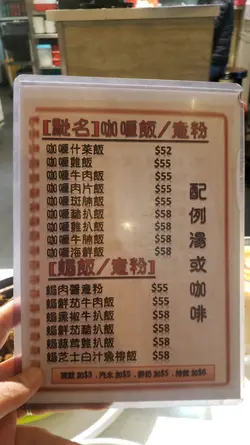 [馳名]咖喱飯/意粉
咖喱什菜飯 $52
咖喱雞飯 $55
咖喱牛肉飯 $55
咖喱肉片飯 $55
咖喱斑腩飯 $55
咖喱豬扒飯 $58
咖喱雞扒飯 $58
咖喱牛腩飯 $58
咖喱海鮮飯 $58
配例湯或咖啡
[焗飯/意粉]
焗肉醬意粉 $55
焗鮮茄牛肉飯 $55
焗黑椒牛扒飯 $58
焗鮮茄豬扒飯 $58
焗蒜茸雞扒飯 $58
焗芝士白汁魚柳飯 $58